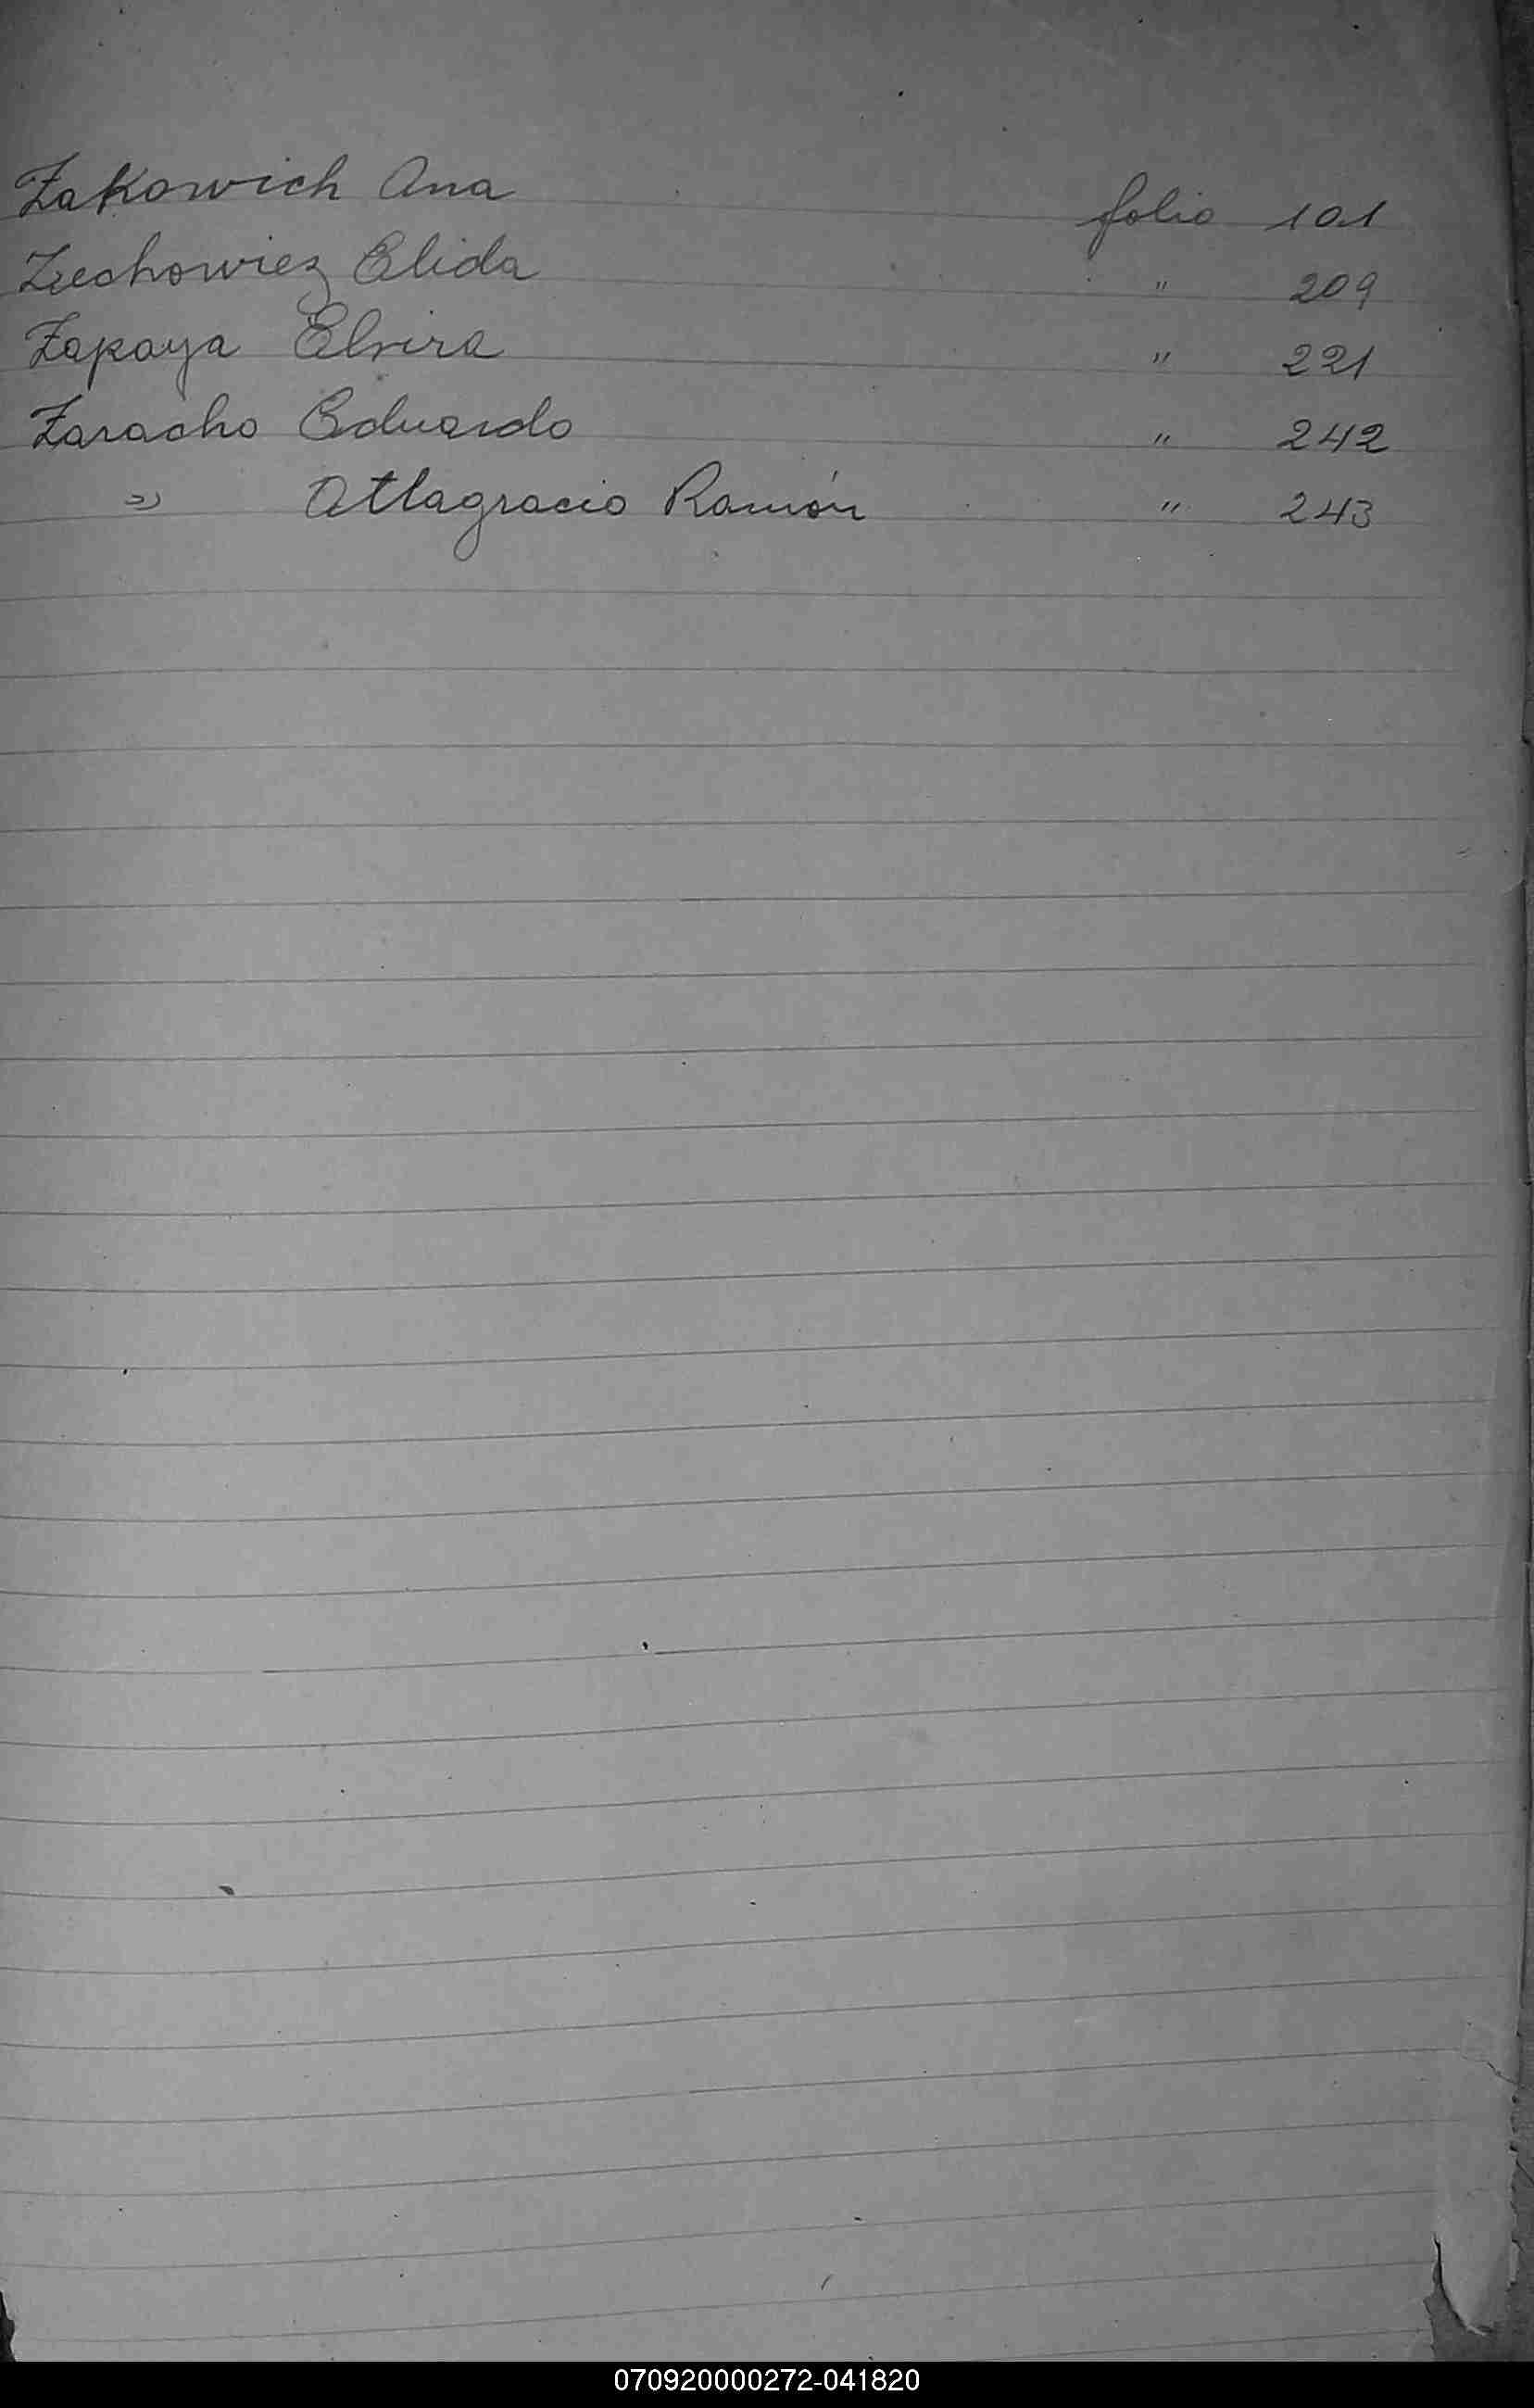 Zakowich Ana folio 101
Zuchowiez Elida " 209
Zapaya Elvira " 221
Zaracho Eduardo " 242
" Altagracio Ramón " 243
070920000272-041820